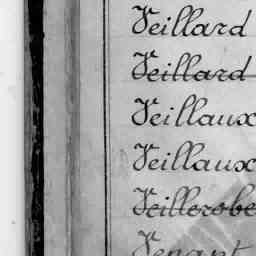 Veillard
Veillard
Veillaux
Veillaux
Veillerobe
Venant